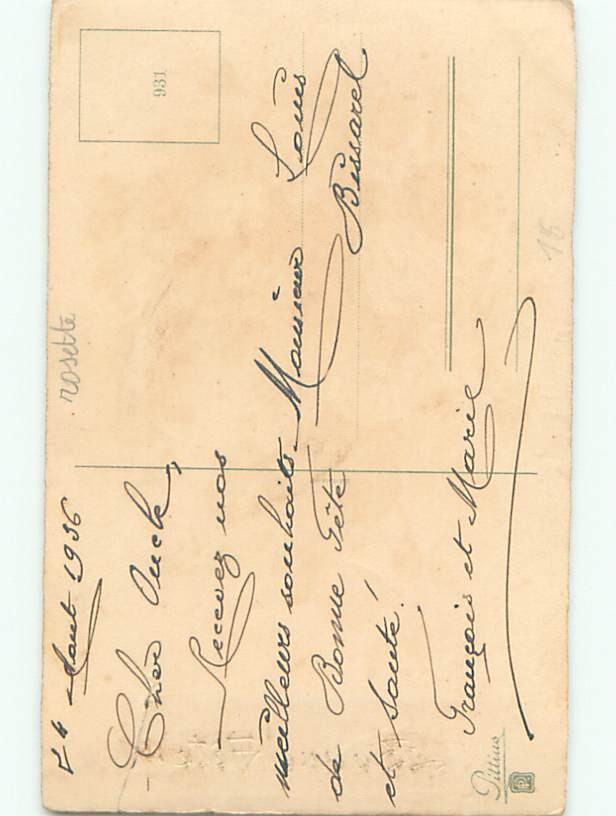 24 Aout 1936
Cher Oncle,
Recevez nos
meilleurs souhaits
de Bonne Fête
et Santé!
François et Marie
Pittius
rosette
931
Monsieur Louis
Bissarel
18